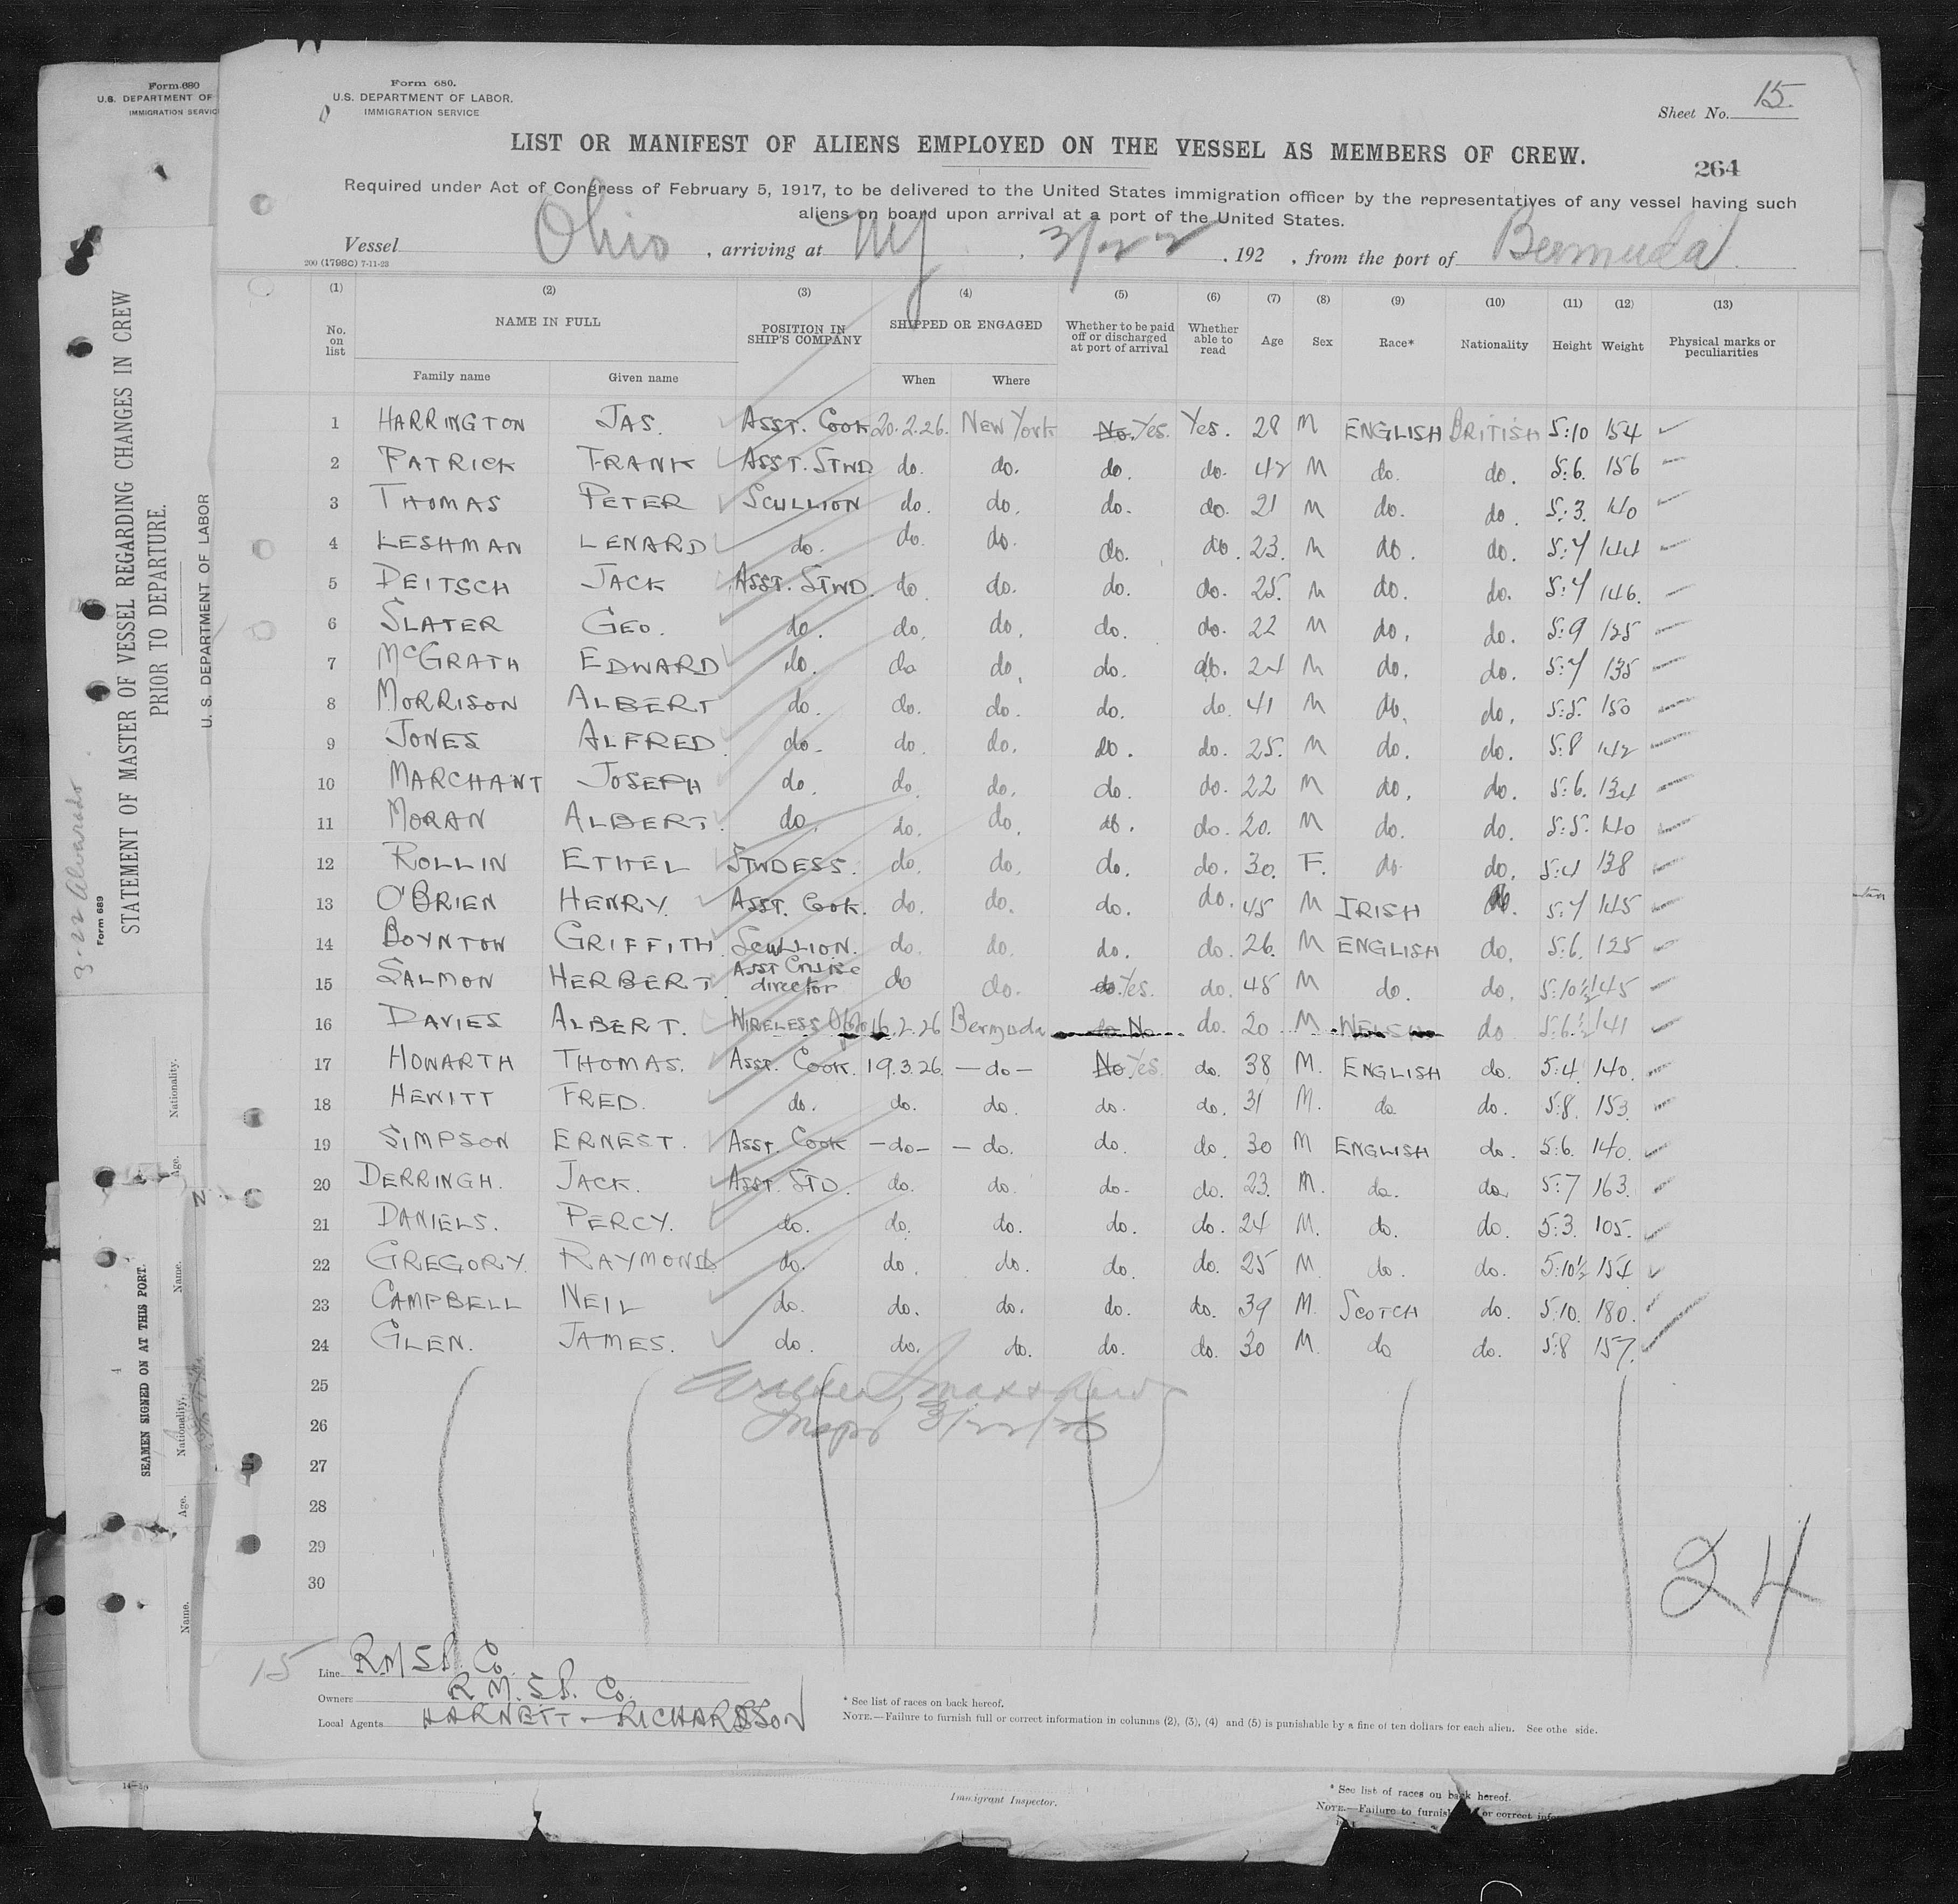 Form 680
U.S. DEPARTMENT OF
IMMIGRATION SERVIC
Form 680.
U.S. DEPARTMENT OF LABOR.
IMMIGRATION SERVICE
Sheet No. 15.
LIST OR MANIFEST OF ALIENS EMPLOYED ON THE VESSEL AS MEMBERS OF CREW.
264
Required under Act of Congress of February 5, 1917, to be delivered to the United States immigration officer by the representatives of any vessel having such
aliens on board upon arrival at a port of the United States.
Vessel Ohio, arriving at NY, 3/22, 192 , from the port of Bermuda
200 (1798C) 7-11-23
(1) (2) (3) (4) (5) (6) (7) (8) (9) (10) (11) (12) (13)
No. on list NAME IN FULL POSITION IN SHIP'S COMPANY SHIPPED OR ENGAGED Whether to be paid off or discharged at port of arrival Whether able to read Age Sex Race* Nationality Height Weight Physical marks or peculiarities
Family name Given name When Where
1 HARRINGTON JAS. ASST. COOK 20.2.26. NEW York No. Yes. Yes. 28 M ENGLISH BRITISH 5:10 154
2 PATRICK FRANK ASST. STWD do. do. do. do. 42 M do. do. 5:6. 156
3 THOMAS PETER SCULLION do. do. do. do. 21 M do. do. 5:3. 140
4 LESHMAN LENARD do. do. do. do. do. 23. M do. do. 5:7 144
5 DEITSCH JACK ASST. STWD. do. do. do. do. 25. M do. do. 5:7 146.
6 SLATER GEO. do. do. do. do. do. 22 M do. do. 5:9 125
7 McGRATH EDWARD do. do do. do. do. 24 M do. do. 5:7 135
8 MORRISON ALBERT do. do. do. do. do. 41 M do. do. 5:5. 150
9 JONES ALFRED. do. do. do. do. do. 25. M do. do. 5:8 142
10 MARCHANT JOSEPH do. do. do. do. do. 22 M do. do. 5:6. 134
11 MORAN ALBERT. do. do. do. do. do. 20. M do. do. 5:5. 140
12 ROLLIN ETHEL STWDESS. do. do. do. do. 30. F. do do. 5:4 138
13 O'BRIEN HENRY. ASST. COOK. do. do. do. do. 45 M IRISH do. 5:7 145
14 BOYNTON GRIFFITH. SCULLION. do. do. do. do. 26. M ENGLISH do. 5:6. 125
15 SALMON HERBERT Asst Cruise director do do. do. Yes. do. 48 M do. do. 5:10½ 145
16 DAVIES ALBERT. WIRELESS 16.2.26 Bermuda No do. 20 M WELSH do 5:6.½ 141
17 HOWARTH THOMAS. ASST. COOK. 19.3.26. — do — No Yes. do. 38 M. ENGLISH do. 5:4. 140.
18 HEWITT FRED. do. do. do. do. do. 31 M. do do. 5:8. 153.
19 SIMPSON ERNEST. ASST. COOK — do — — do. do. do. 30 M ENGLISH do. 5:6. 140.
20 DERRINGH. JACK. ASST. STD. do. do. do. do. 23. M. do. do. 5:7 163.
21 DANIELS. PERCY. do. do. do. do. do. 24 M. do. do. 5:3. 105.
22 GREGORY. RAYMOND do. do. do. do. do. 25 M. do. do. 5:10½ 154.
23 CAMPBELL NEIL do. do. do. do. do. 39 M. SCOTCH do. 5:10. 180.
24 GLEN. JAMES. do. do. do. do. do. 30 M. do do. 5:8 157.
25
26 Inspr 3/22/26
27
28
29
30
24
15
Line R.M.S.P. Co.
Owners R.M.S.P. Co.
Local Agents HARNETT - RICHARDSON
* See list of races on back hereof.
NOTE.—Failure to furnish full or correct information in columns (2), (3), (4) and (5) is punishable by a fine of ten dollars for each alien. See othe side.
3-22 Alvarado
Form 689
STATEMENT OF MASTER OF VESSEL REGARDING CHANGES IN CREW
PRIOR TO DEPARTURE.
U. S. DEPARTMENT OF LABOR
SEAMEN SIGNED ON AT THIS PORT.
Name. Age. Nationality. Name. Age. Nationality.
14—18
Immigrant Inspector.
* See list of races on back hereof.
NOTE.—Failure to furnish or correct